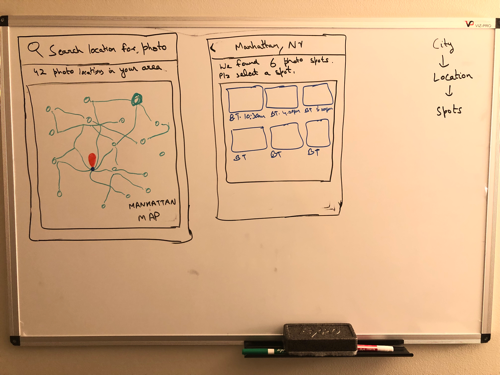 Search location for, photo
42 photo location in your area.
MANHATTAN
MAP
< Manhattan, NY
We found 6 photo spots.
Plz select a spot.
BT: 10:30am BT: 4:00pm BT:
BT BT BT
City
↓
Location
↓
Spots